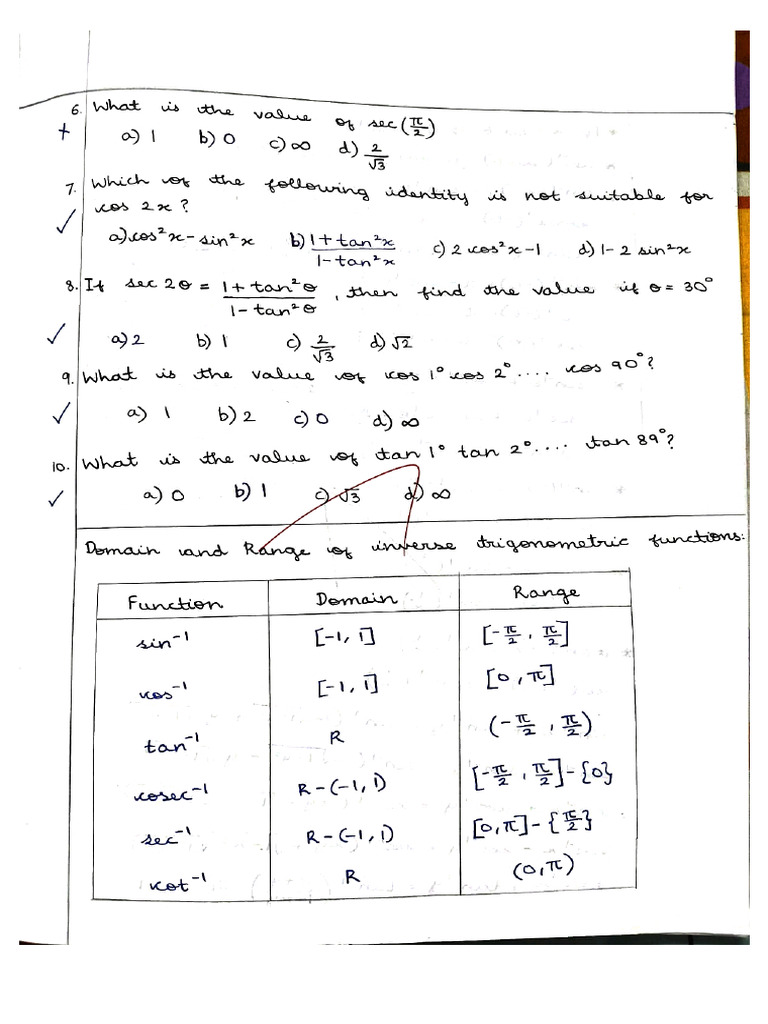 6. What is the value of sec(π/2)
a) 1 b) 0 c) ∞ d) 2/√3
7. Which of the following identity is not suitable for
cos 2x?
a) cos²x - sin²x b) (1 + tan²x)/(1 - tan²x) c) 2 cos²x - 1 d) 1 - 2 sin²x
8. If sec 2θ = (1 + tan²θ)/(1 - tan²θ), then find the value if θ = 30°
a) 2 b) 1 c) 2/√3 d) √2
9. What is the value of cos 1° cos 2° .... cos 90°?
a) 1 b) 2 c) 0 d) ∞
10. What is the value of tan 1° tan 2° .... tan 89°?
a) 0 b) 1 c) √3 d) ∞
Domain and Range of inverse trigonometric functions:
Function Domain Range
sin⁻¹ [-1, 1] [-π/2, π/2]
cos⁻¹ [-1, 1] [0, π]
tan⁻¹ R (-π/2, π/2)
cosec⁻¹ R - (-1, 1) [-π/2, π/2] - {0}
sec⁻¹ R - (-1, 1) [0, π] - {π/2}
cot⁻¹ R (0, π)